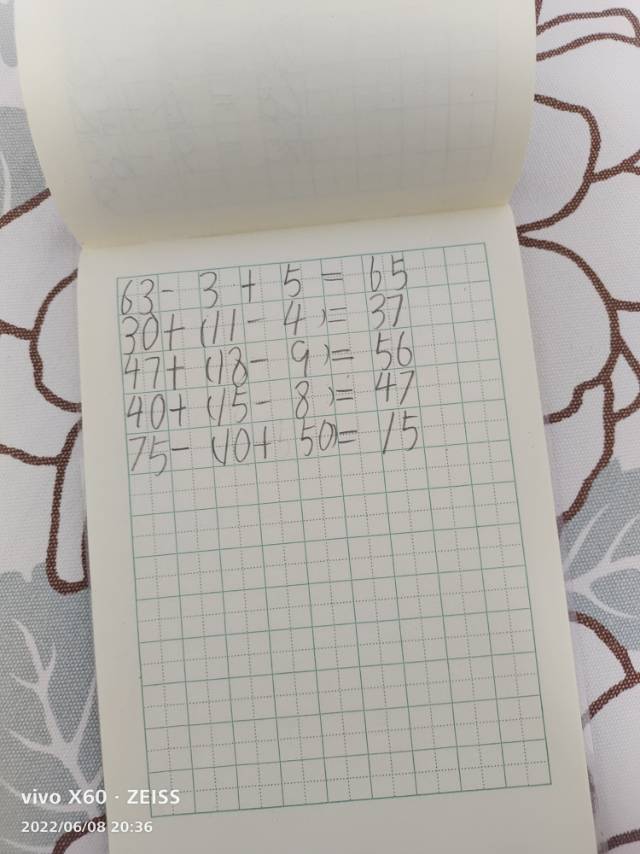 63- 3 + 5 = 65
30+ (11- 4)= 37
47+ (18- 9)= 56
40+ (15- 8)= 47
75- (10+ 50)= 15
vivo X60 · ZEISS
2022/06/08 20:36